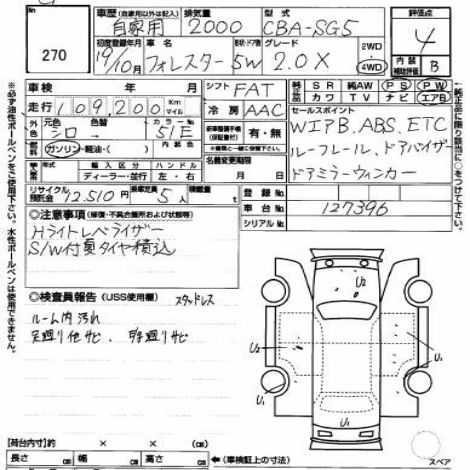 車歴(自家用以外は記入) 排気量 型式 評価点
270 自家用 2000 CBA-SG5 4
初度登録年月 車名 ドア形状 グレード 2WD 内装
19/10月 フォレスター 5W 2.0X 4WD 補助評価 B
車検 年 月 シフト FAT 純正 SR 純AW PS PW
カワ TV ナビ エアB
走行 109200 Km マイル 冷房 AAC セールスポイント
WエアB、ABS、ETC
元色 シロ 色替 カラーNo. 51E 新車整備手帳(保証書付) 有・無 ルーフレール、ドアバイザー
燃料 ガソリン・軽油・( ) 内装色 名義変更期限 ドアミラーウィンカー
輸入区分 ハンドル
ディーラー・並行 左・右 月 日
リサイクル預託金 12.510円 乗車定員 5人 積載量 t 登録No.
車台No. 127396
シリアルNo.
◎注意事項(修復・不具合箇所および状態等)
Hライトレベライザー
S/W付夏タイヤ積込
◎検査員報告(USS使用欄) スタッドレス
ルーム内汚れ
足廻り他サビ
U2
U2
U1
U1
【荷台内寸】約 × ×
長さ cm 幅 cm 高さ cm ←(車検証上の寸法) スペア
※必ず油性ボールペンをご使用下さい。水性ボールペンは使用不可です。